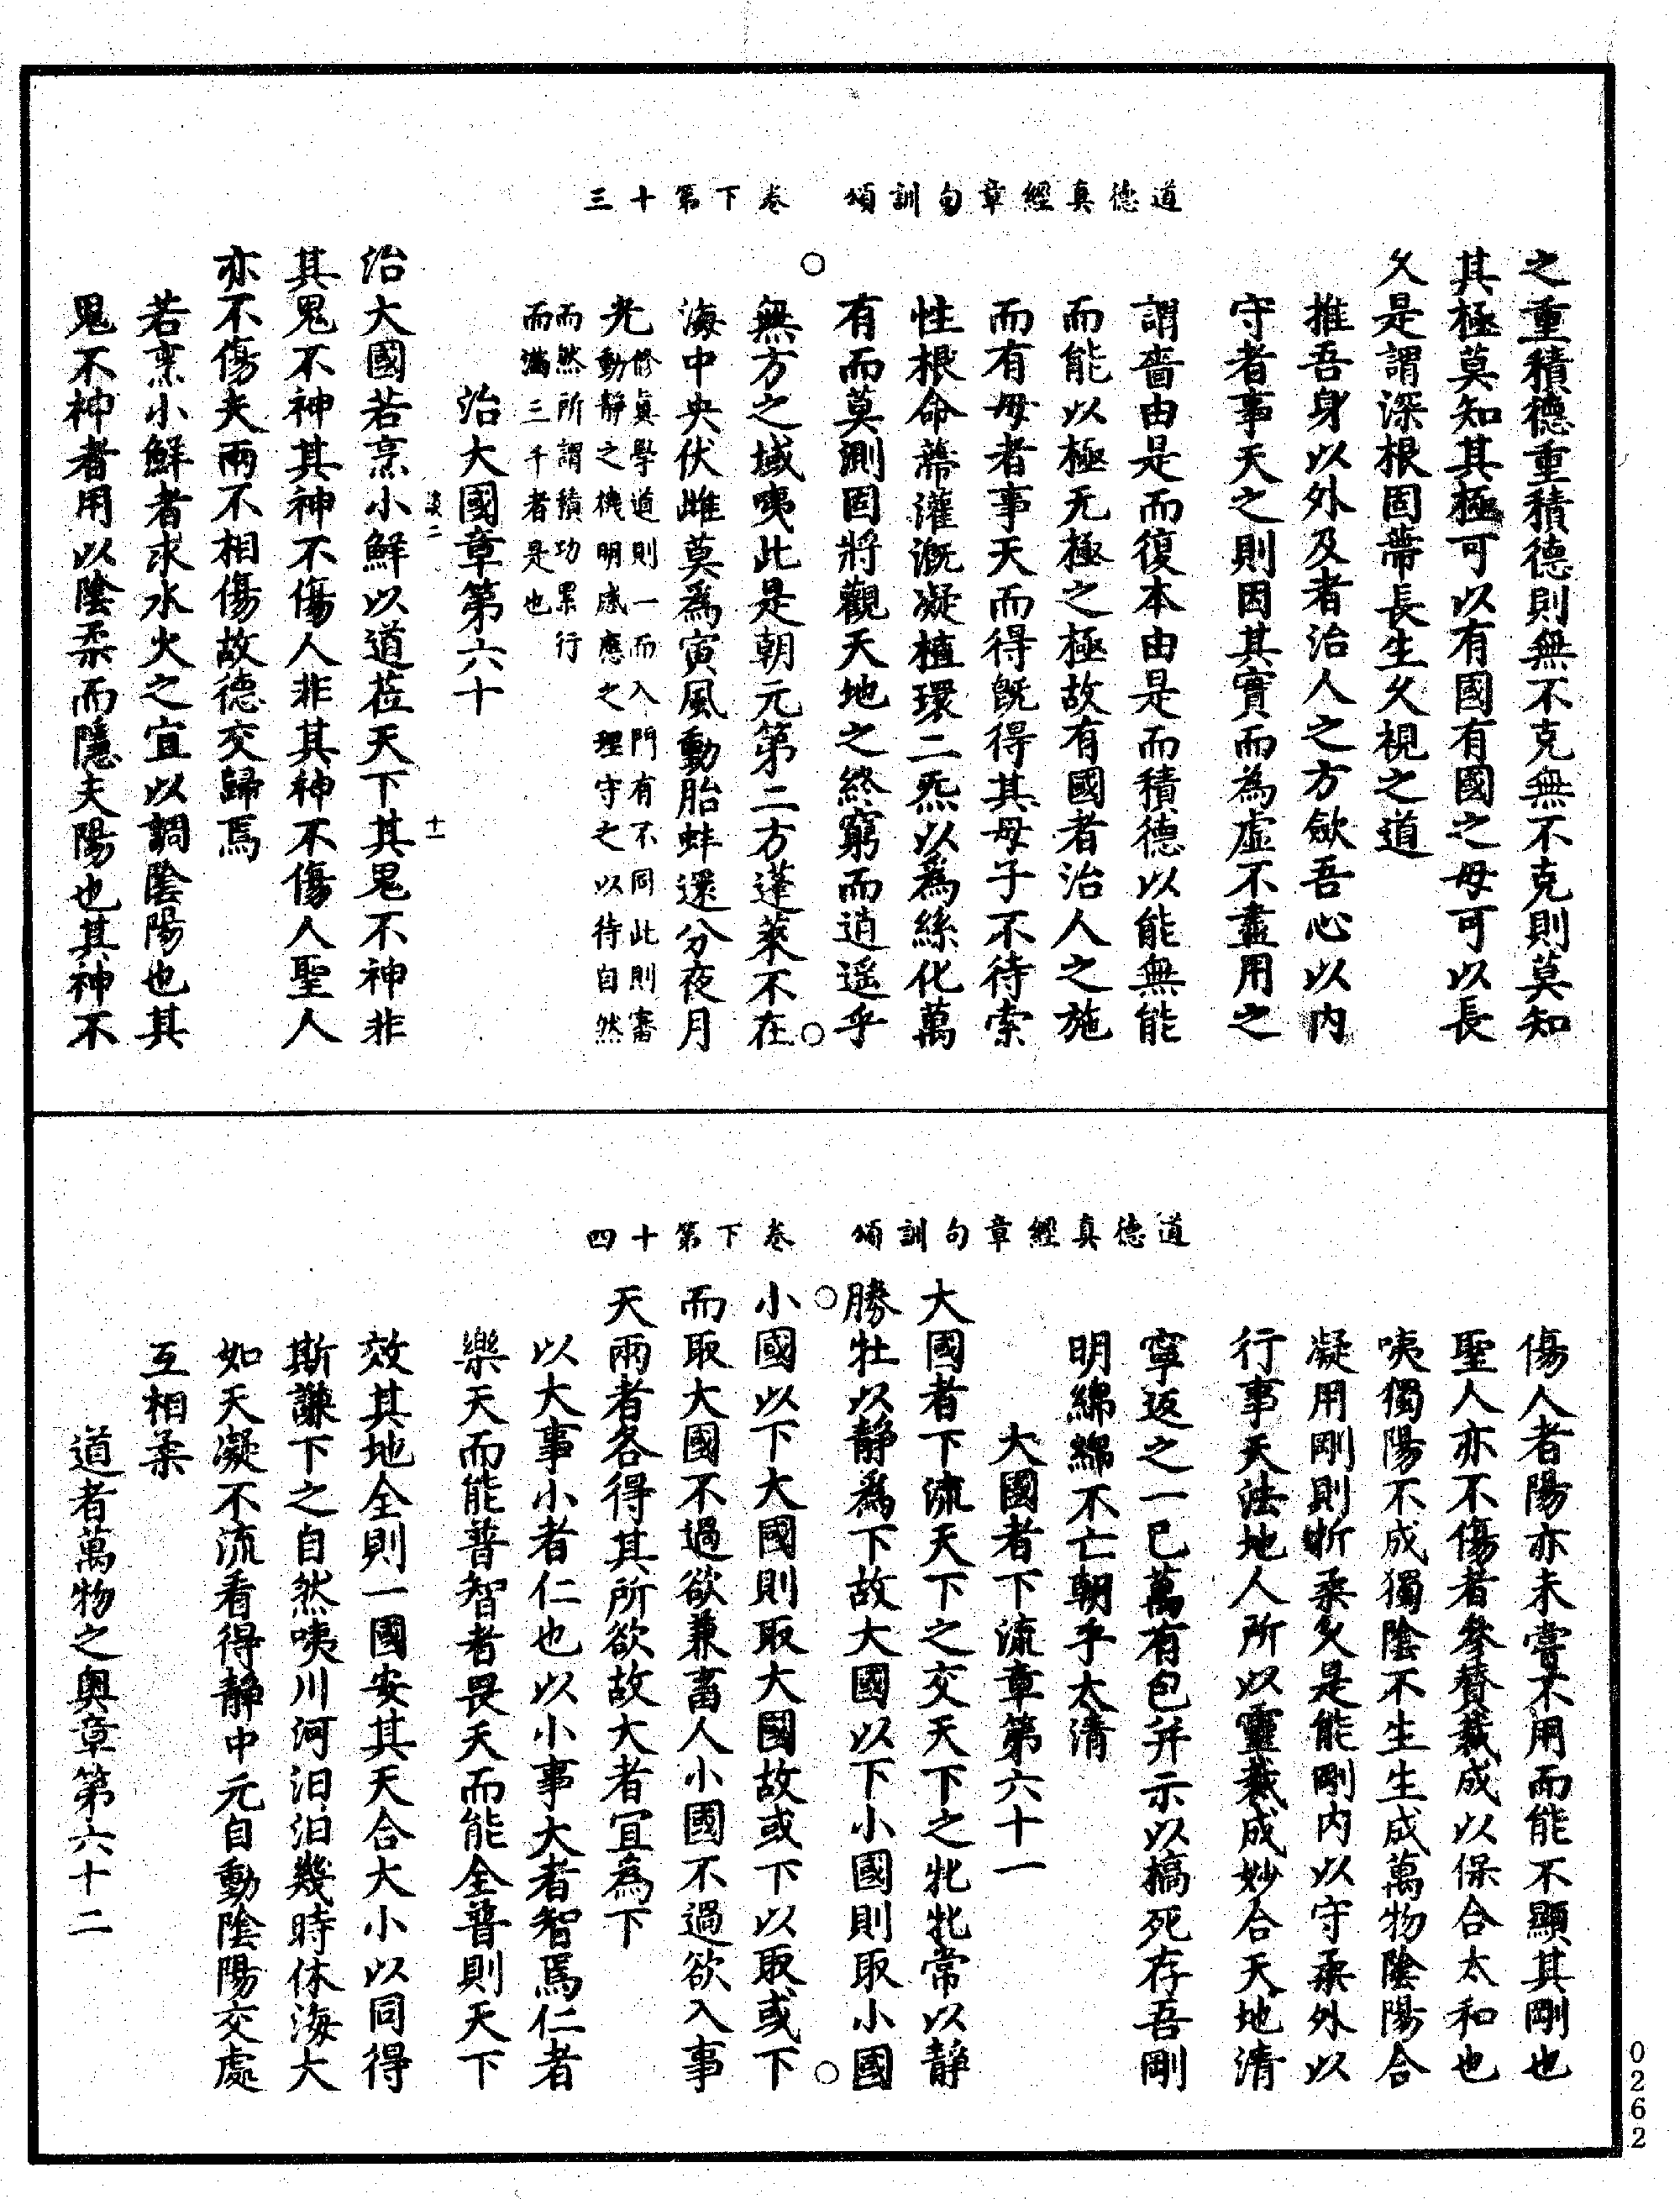 道德真經章句訓頌　卷下第十三
之重積德重積德則無不克無不克則莫知
其極莫知其極可以有國有國之母可以長
久是謂深根固蔕長生久視之道
推吾身以外及者治人之方歛吾心以內
守者事天之則因其實而為虛不盡用之
謂嗇由是而復本由是而積德以能無能
而能以極无極之極故有國者治人之施
而有母者事天而得旣得其母子不待索
性根命蔕灌溉凝植環二炁以爲絲化萬
有而莫測固將觀天地之終窮而逍遥乎
無方之域咦此是朝元第二方蓬萊不在
海中央伏雌莫爲寅風動胎蚌還分夜月
光脩眞學道則一而入門有不同此則審
動靜之機明感應之理守之以待自然
而然所謂積功累行
而滿三千者是也
治大國章第六十
談二　十一
治大國若烹小鮮以道莅天下其鬼不神非
其鬼不神其神不傷人非其神不傷人聖人
亦不傷夫兩不相傷故德交歸焉
若烹小鮮者求水火之宜以調陰陽也其
鬼不神者用以陰柔而隱夫陽也其神不
道德真經章句訓頌　卷下第十四
傷人者陽亦未嘗不用而能不顯其剛也
聖人亦不傷者參賛裁成以保合太和也
咦獨陽不成獨陰不生生成萬物陰陽合
凝用剛則折柔久是能剛內以守柔外以
行事天法地人所以靈裁成妙合天地清
寧返之一已萬有包并示以槁死存吾剛
明綿綿不亡朝乎太清
大國者下流章第六十一
大國者下流天下之交天下之牝牝常以靜
勝牡以靜爲下故大國以下小國則取小國
小國以下大國則取大國故或下以取或下
而取大國不過欲兼畜人小國不過欲入事
天兩者各得其所欲故大者宜為下
以大事小者仁也以小事大者智焉仁者
樂天而能普智者畏天而能全普則天下
效其地全則一國安其天合大小以同得
斯謙下之自然咦川河汨汨幾時休海大
如天凝不流看得靜中元自動陰陽交處
互相柔
道者萬物之奥章第六十二
0262